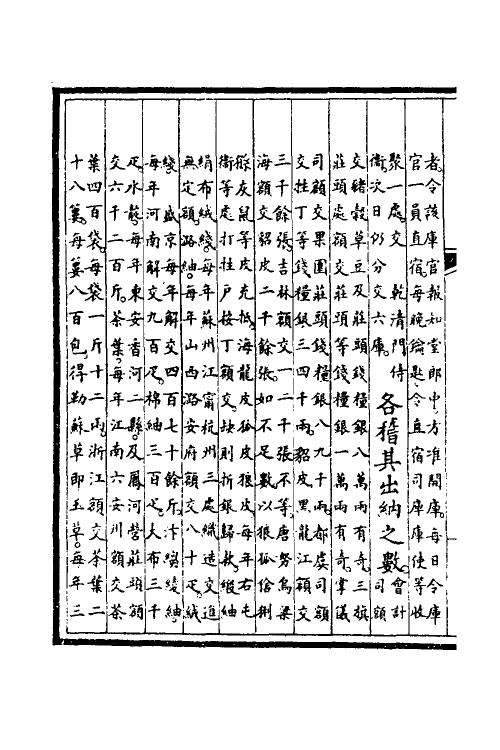 者。令該庫官報知堂郎中。方准開庫。每日令庫
官一員直宿。每晚鑰匙。令直宿司庫庫使等收
聚一處。交 乾清門侍
衛。次日仍分交六庫。
各稽其出納之數。
會計
司額
交豬穀草豆及莊頭錢糧銀八萬兩有奇。三旗
莊頭處額交莊頭等錢糧銀一萬兩有奇。掌儀
司額交果園莊頭錢糧銀八九千兩。都虞司額
交牲丁等錢糧銀三四千兩。貂皮黑龍江額交
三千餘張。吉林額交一二千張不等。唐努烏梁
海額交貂皮二千餘張。如不足數。以狼狐猞猁
猻灰鼠等皮充抵。海龍皮狐皮。每年右屯
衛等處打牲戶按丁額交。缺則折銀歸款。緞紬
絹布絨綫。每年蘇州江甯杭州三處織造交進
無定額。潞紬。每年山西潞安府額交八十疋。絨
綫。 盛京每年解交四百七十餘斤。汴縐綾紬。
每年河南解交九百疋。棉紬三百疋。大布三千
疋。水藤。每年東安香河二縣。及鳳河營莊頭額
交六千二百斤。茶葉。每年江南六安州額交茶
葉四百袋。每袋一斤十二兩。浙江額交茶葉二
十八簍。每簍八百包。得勒蘇草即玉草。每年三